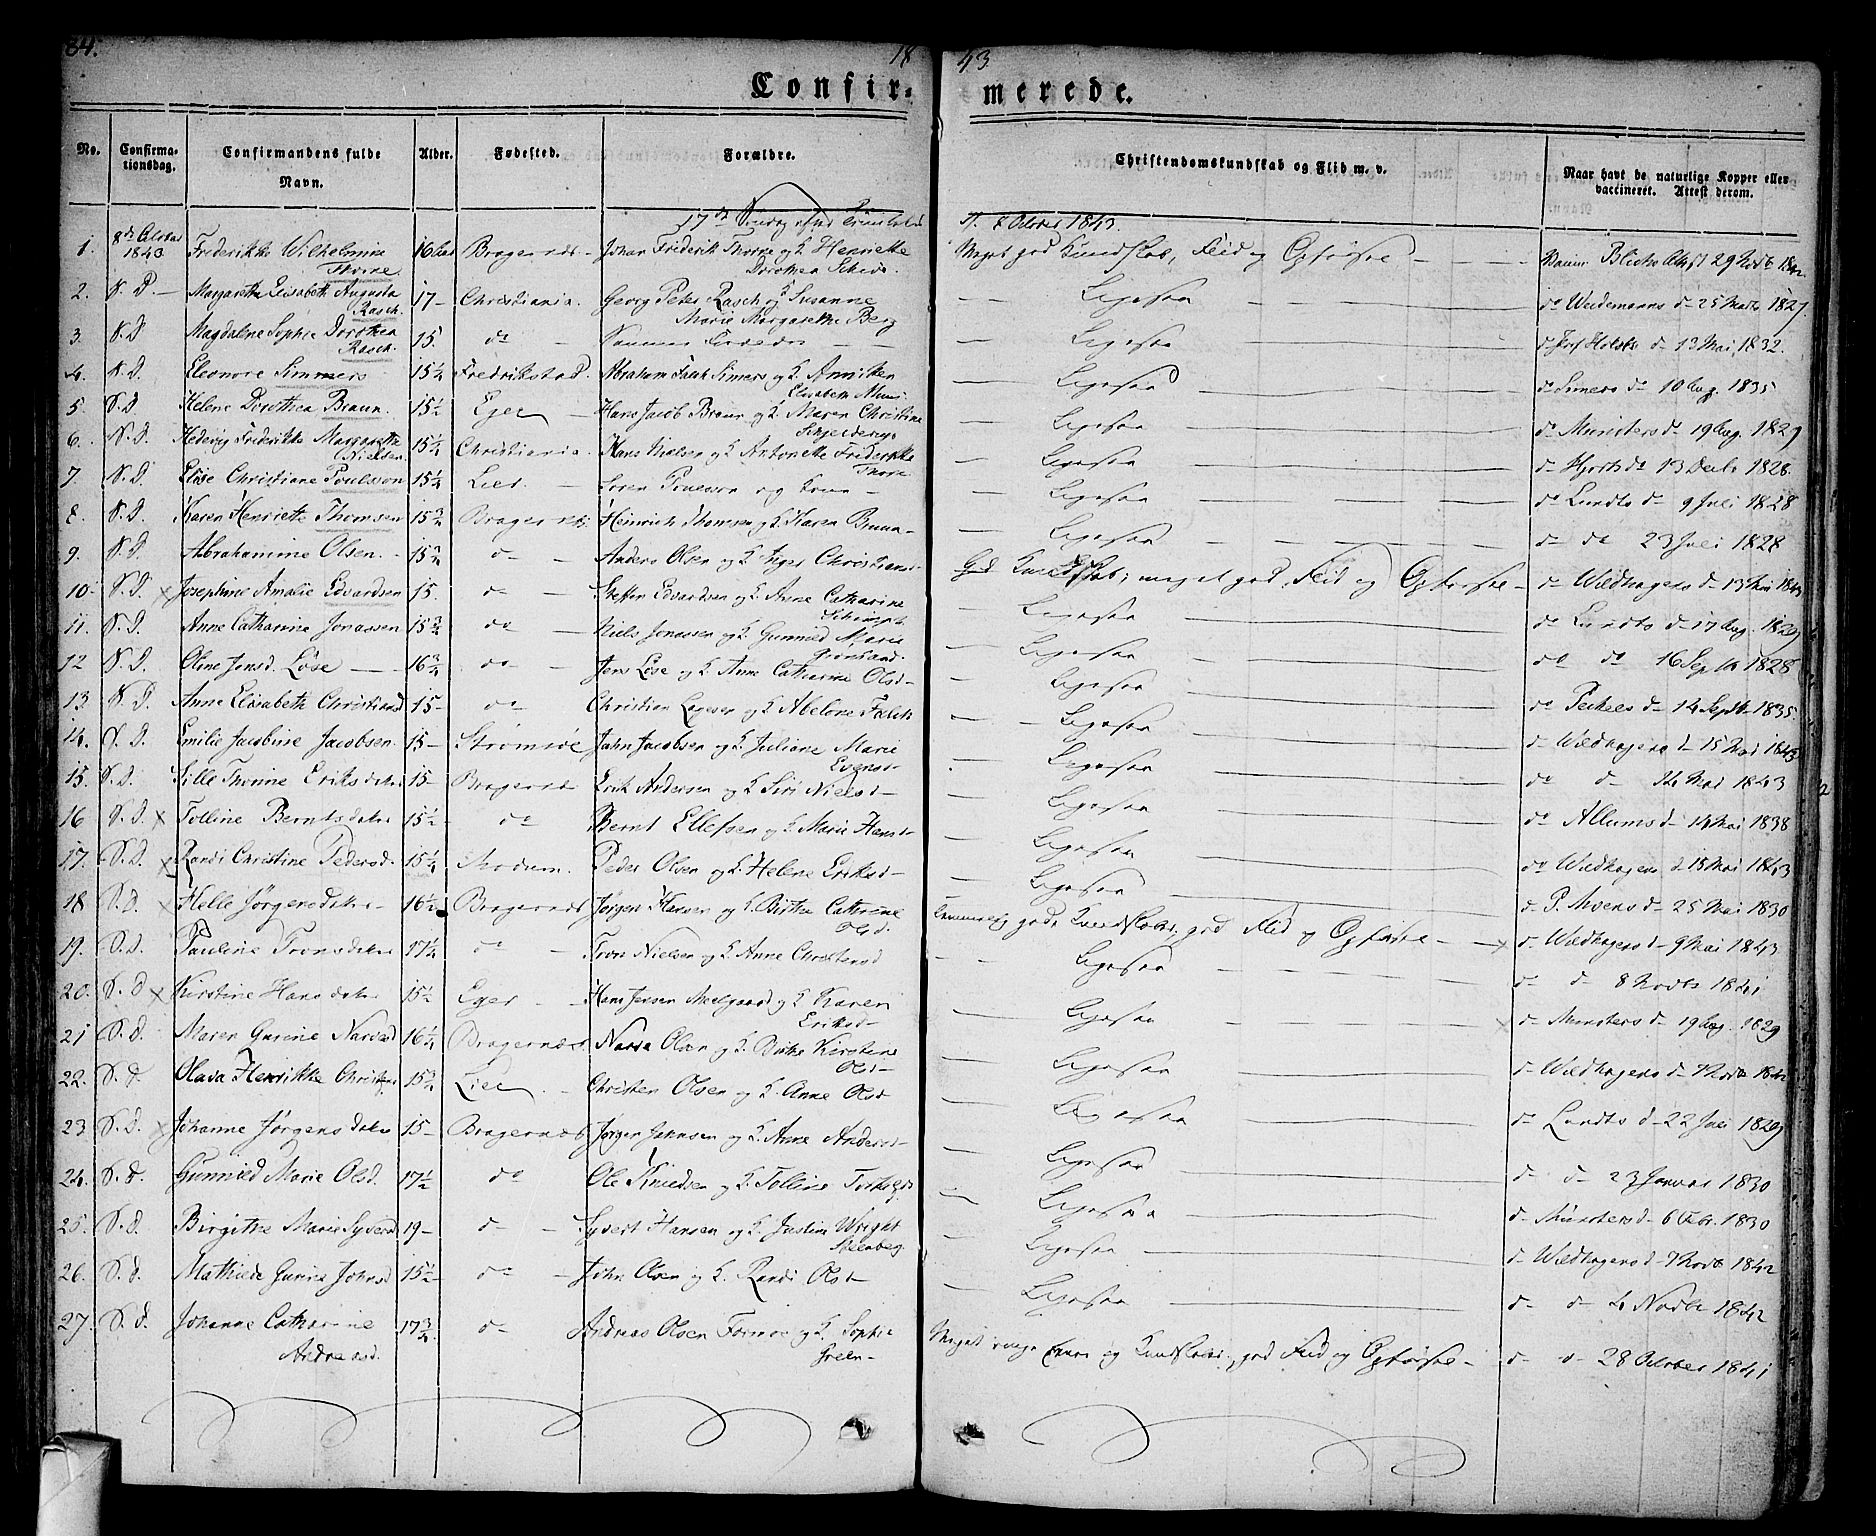 84.
18 43.
Confir- merede.
No. Confirma-tionsdag. Confirmandens fulde Navn. Alder. Fødested. Forældre. Christendomskundskab og Flid m. v. Naar havt de naturlige Kopper eller vaccineret. Attest derom.
17de Søndag efter Trinitatis d. 8 October 1843
1. 8de October 1843 Frederikke Wilhelmine Thorne 16 Bragernæs Johan Frederik Thorne og H. Henriette Dorothea Meget god Kundskab, Flid og Opførsel 29 Novb 1842
2. S. D. Margarethe Elisabeth Augusta Rasch. 17 Christiania. Georg Peter Rasch og H. Susanne Marie Margarethe Berg Ligesaa do Weidemanns d 25 1827
3. S. D Magdalene Sophie Dorothea Rasch. 15. do Ligesaa do Holst d 12 Mai 1832.
4. S. D. Eleonore Simmers 15¼ Fredrikstad Abraham Simers og H. Anniken Elisabeth Ligesaa do Simers do 10 Aug. 1835
5 S. D Helene Dorothea Braun. 15½ Eger Hans Jacob Braun og H. Maren Christine Schjelderup Ligesaa do Munsters d 19 Aug. 1829
6. S. D. Hedevig Frederikke Margarethe Nielsen 15½ Christiania Hans Nielsen og H. Antonette Frederikke Thorne Ligesaa do Hjorts do 13 Decb 1828.
7 S. D. Elise Christiane Poulsson 15¼ Lier. Søren Poulsson og Ligesaa do Lundts d 9 Juli 1828
8. S. D. Karen Henriette Thomsen 15¾ Bragernæs Heinrich Thomsen og H. Karen Bruun Ligesaa do do 23 Juli 1828
9. S. D. Abrahamine Olsen. 15¾ do Anders Olsen og H. Inger Christians God Kundskab, meget god Flid og Opførsel do Wildhagens d 13 Mai 1843
10. S. D. x Josephine Amalie Edvardsen 15. do Steffen Edvardsen og H. Anne Catharine Ligesaa do Lundts d 17 Aug. 1829
11. S. D. Anne Catharine Jonassen 15¾ do Niels Jonassen og H. Gunnild Marie Ligesaa do do 16 Septb 1828
12 S. D. Oline Jensd. Løse 16¾ do Jens Løse og H. Anne Catharine Olsd Ligesaa
13. S. D. Anne Elisabeth Christiansd 15 do Christian og H. Abelone Falch Ligesaa do d 14 Septb 1835.
14. S. D Emilie Jacobine Jacobsen. 15 Strømsøe John Jacobsen og H. Juliane Marie Evensd Ligesaa do Wildhagens d 15 Mai 1843
15. S. D. Sille Thorine Eriksdatter 15 Bragernæs Erik Andersen og H. Siri Nielsd Ligesaa do d 14 Mai 1843
16 S. D. x Tolline Berntsdatter 15½ do Bernt Ellefsen og H. Marie Hansd Ligesaa do Allums d 14 Mai 1838
17. S. D. x Randi Christine Pedersd. 15¼ Modum. Peder Olsen og H. Helene Eriksd Ligesaa do Wildhagens d 15 Mai 1843
18 S. D. x Helle Jørgensdatter 16½ Bragernæs Jørgen Hansen og H. Birthe Cathrine Olsd. Temmelig god Kundskab, god Flid og Opførsel d P. Moens d 25 Mai 1830
19. S. D. Pauline Tronsdatter 17¼ do Tron Nielsen og H. Anne Christensd Ligesaa x d Wildhagens d 9 Mai 1843
20. S. D x Kirstine Hansdatter 15½ Eger Hans Jensen og H. Karen Eriksd Ligesaa d d 8 Novb 1841
21 S. D. Maren Gurine Narvesd 16¼ Bragernæs Narve Olsen og H. Birthe Kirstine Olsd Ligesaa x d Munsters d 19 Aug. 1829
22. S. D. Olava Henrikke Christensd 15¾ Lier Christen Olsen og H. Anne Olsd Ligesaa d Wildhagens d 7 Novb 1842
23 S. D. x Johanne Jørgensdatter 15 Bragernæs Jørgen Johnsen og H. Anne Andersd Ligesaa d Lundts d 22 Juli 1829
24. S. D. Gunnild Marie Olsd. 17½ do Ole Knudsen og H. Tolline Torkelsd Ligesaa d d 23 Januar 1830
25. S. D. Birgitte Marie Syversd 19 d Syvert Hansen og H. Justine Wright Steenberg. Ligesaa d Munsters d 6 Febr. 1830
26. S. D. Mathilde Gurine Johnsd 15½ do John Olsen og H. Randi Olsd Ligesaa d Wildhagens d 7 Novb 1842
27. S. D. Johanne Catharine Andreasd. 17¾ d Andreas Olsen og H. Sophie Green Ligesaa d d 4 Novbr 1842
Meget ringe og Kundskab, god Flid og Opførsel d d 28 October 1841